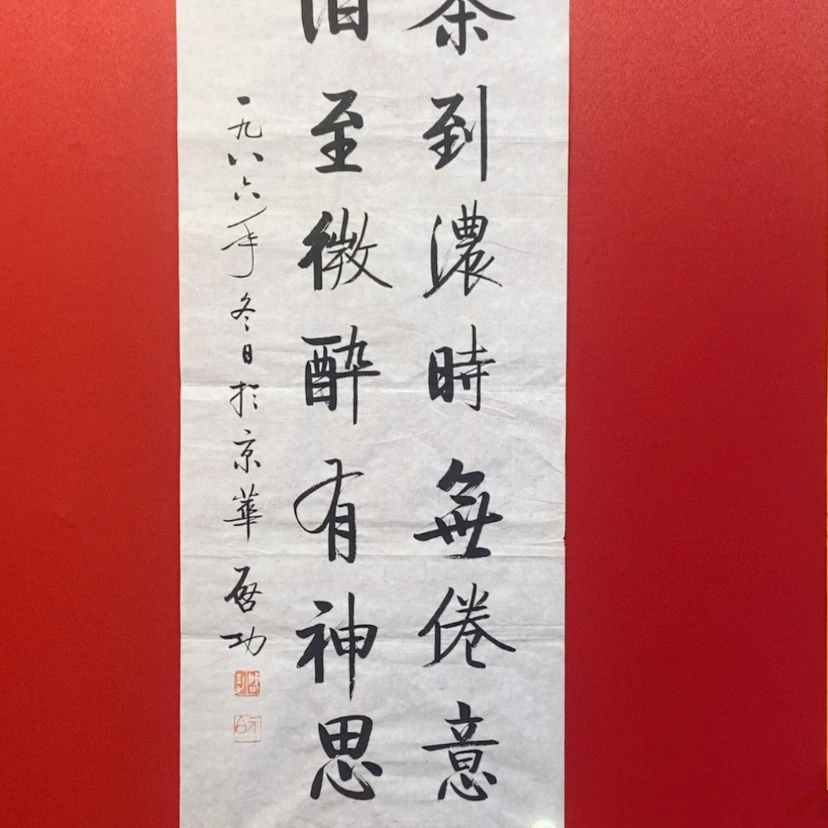 茶到濃時無倦意
酒至微醉有神思
一九八六年冬日於京華啓功